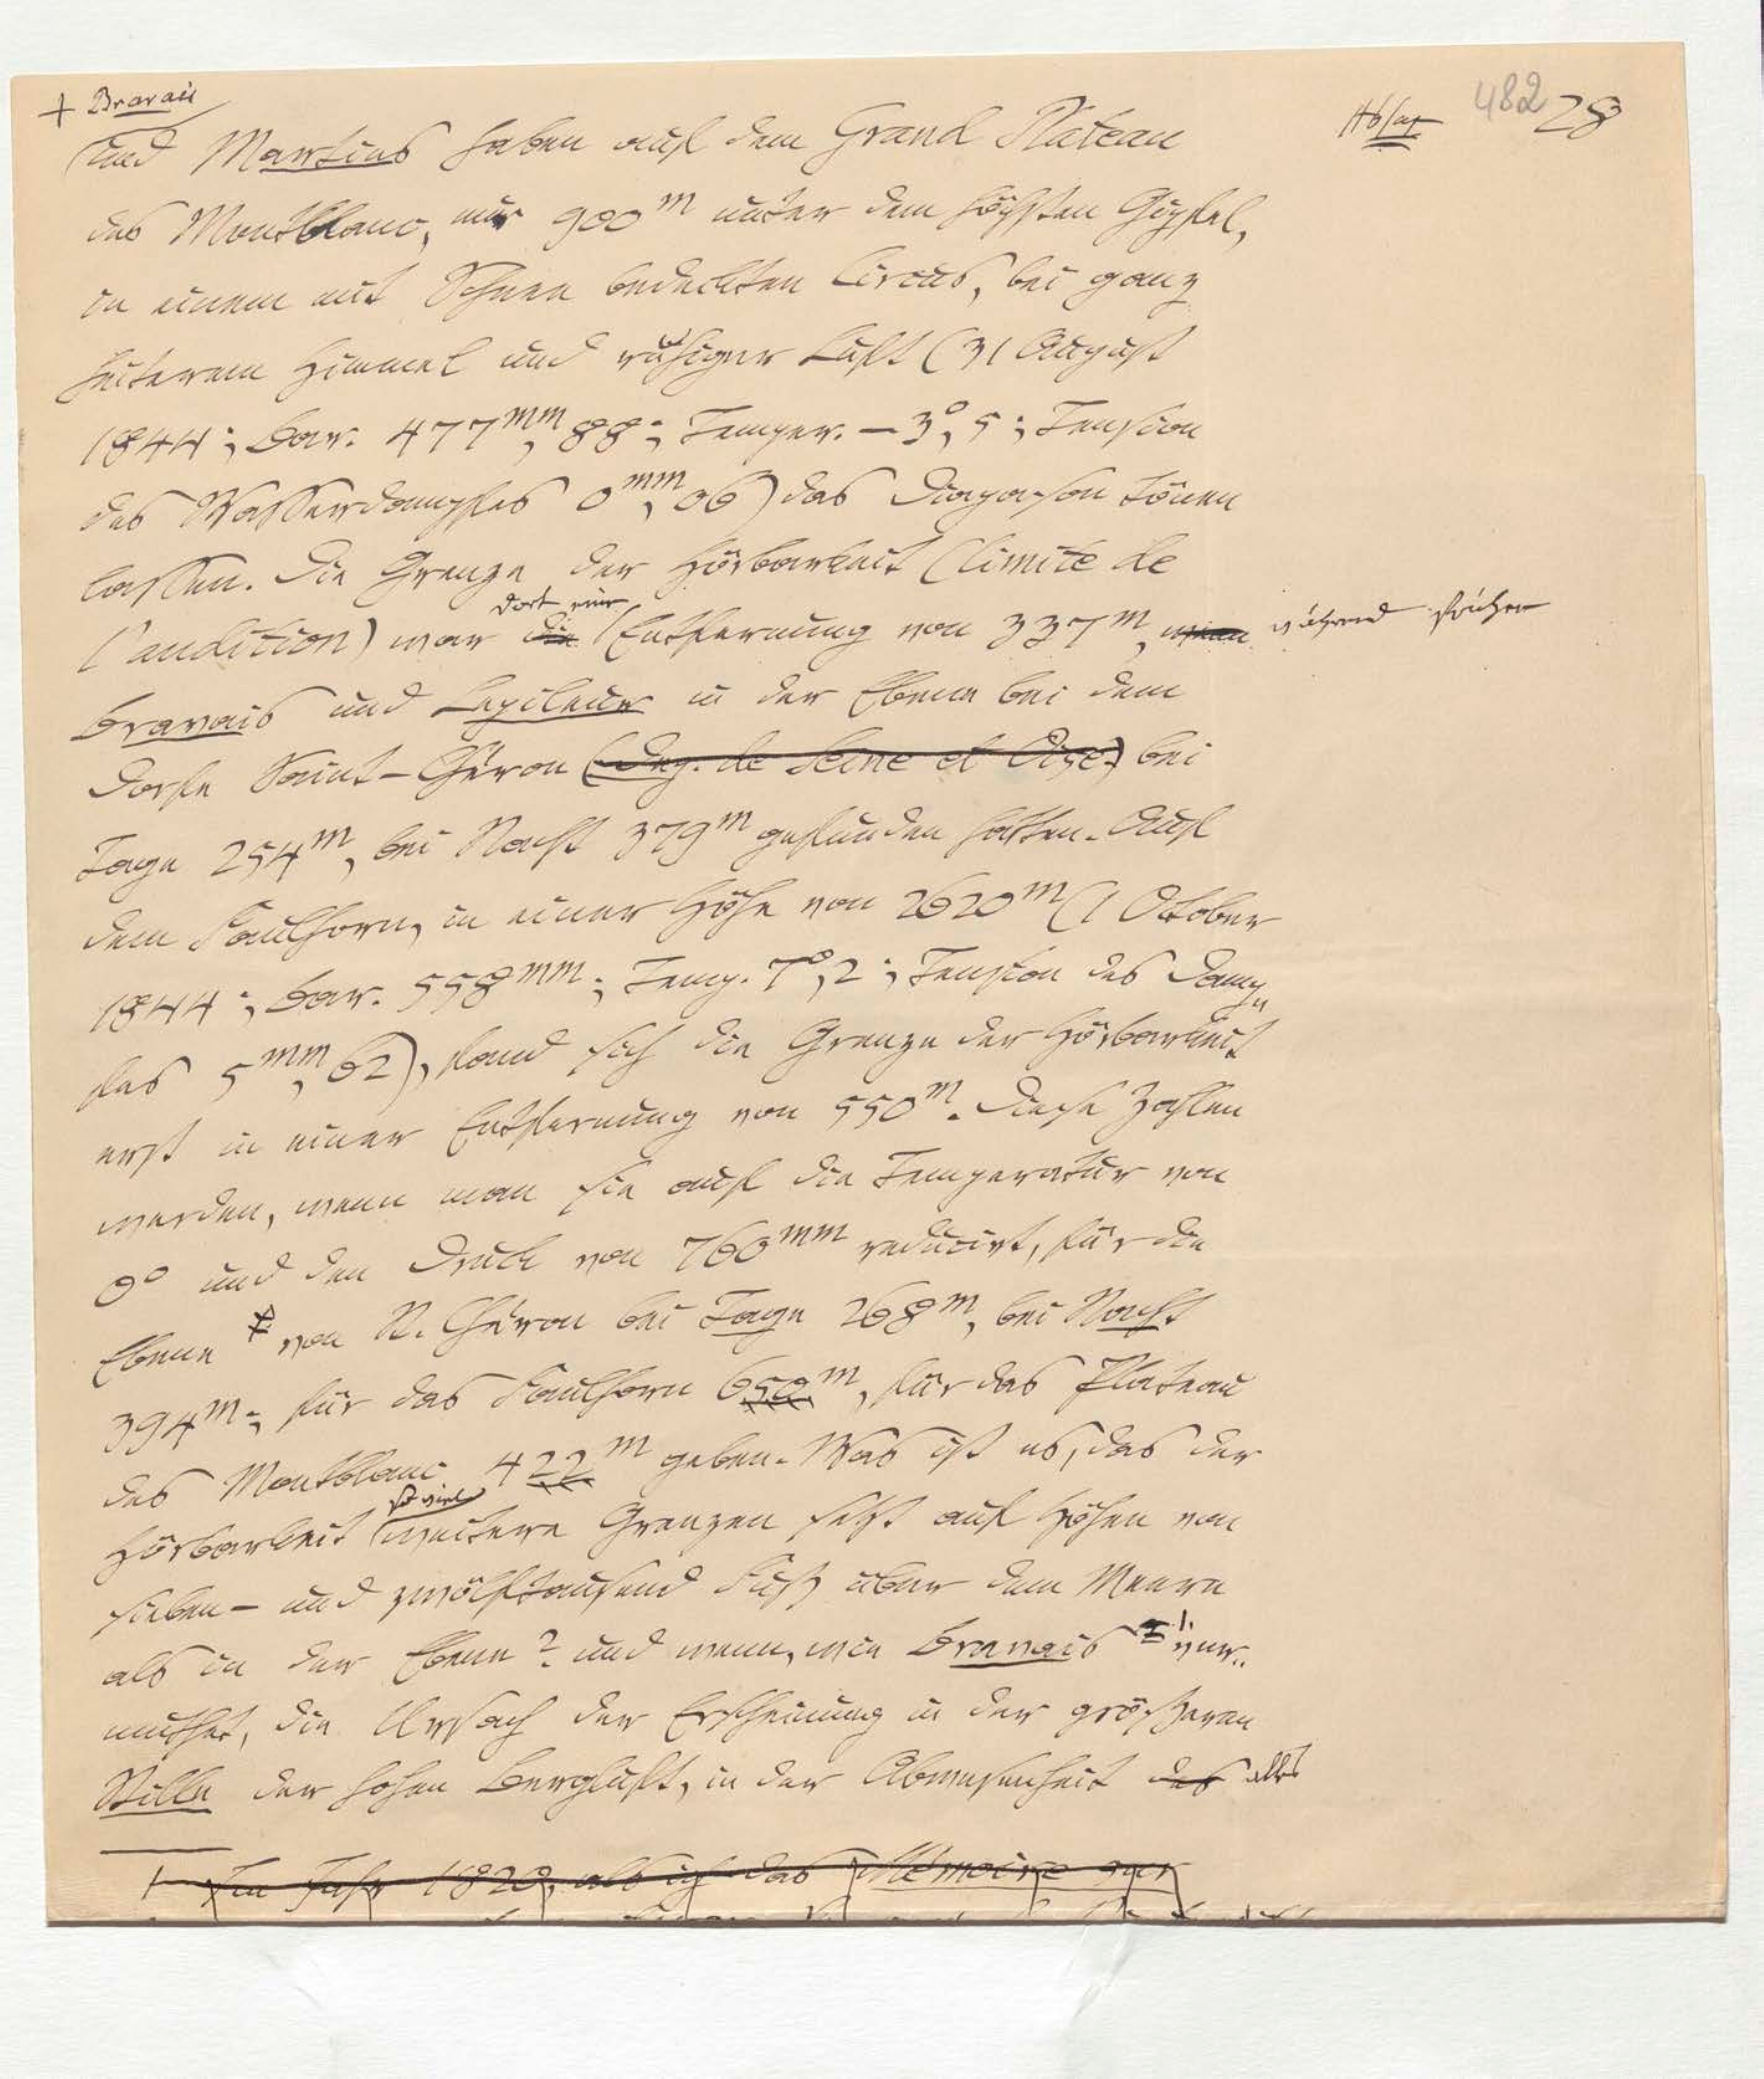 + Bravais
482 28
und Martins haben auf dem Grand Plateau
des Montblanc, nur 900m unter dem höchsten Gipfel,
in einem mit Schnee bedeckten Circus, bei ganz
heiterem Himmel und ruhiger Luft (31 August
1844; Bar. 477mm,88; Temper. –3°,5; Tension
des Wasserdampfes 0mm,06) das Diapason tönen
lassen. Die Grenze der Hörbarkeit (limite de
dort eine
l'audition) war die Entfernung von 337m, wenn während früher
Bravais und Lepileur in der Ebene bei dem
Dorfe Saint-Chéron (Dep. de Seine et Oise) bei
Tage 254m, bei Nacht 379m gefunden hatten. Auf
dem Faulhorn, in einer Höhe von 2620m (1 October
1844; Bar. 558mm; Temp. 7°,2; Tension des Damp„
fes 5mm,62), fand sich die Grenze der Hörbarkeit
erst in einer Entfernung von 550m. Diese Zahlen
werden, wenn man sie auf die Temperatur von
0° und den Druck von 760mm reducirt, für die
Ebene von St. Chéron bei Tage 268m, bei Nacht
394m; für das Faulhorn 658m, für das Plateau
des Montblanc 422m geben. Was ist es, das der
so viel
Hörbarkeit weitere Grenzen setzt auf Höhen von
sieben- und zwölftausend Fuß über dem Meere
als in der Ebene? und wenn, wie Bravais ver„
muthet, die Ursach der Erscheinung in der größeren
Stille der hohen Bergluft, in der Abwesenheit des alles
Im Jahr 1820, als ich das Mémoire sur